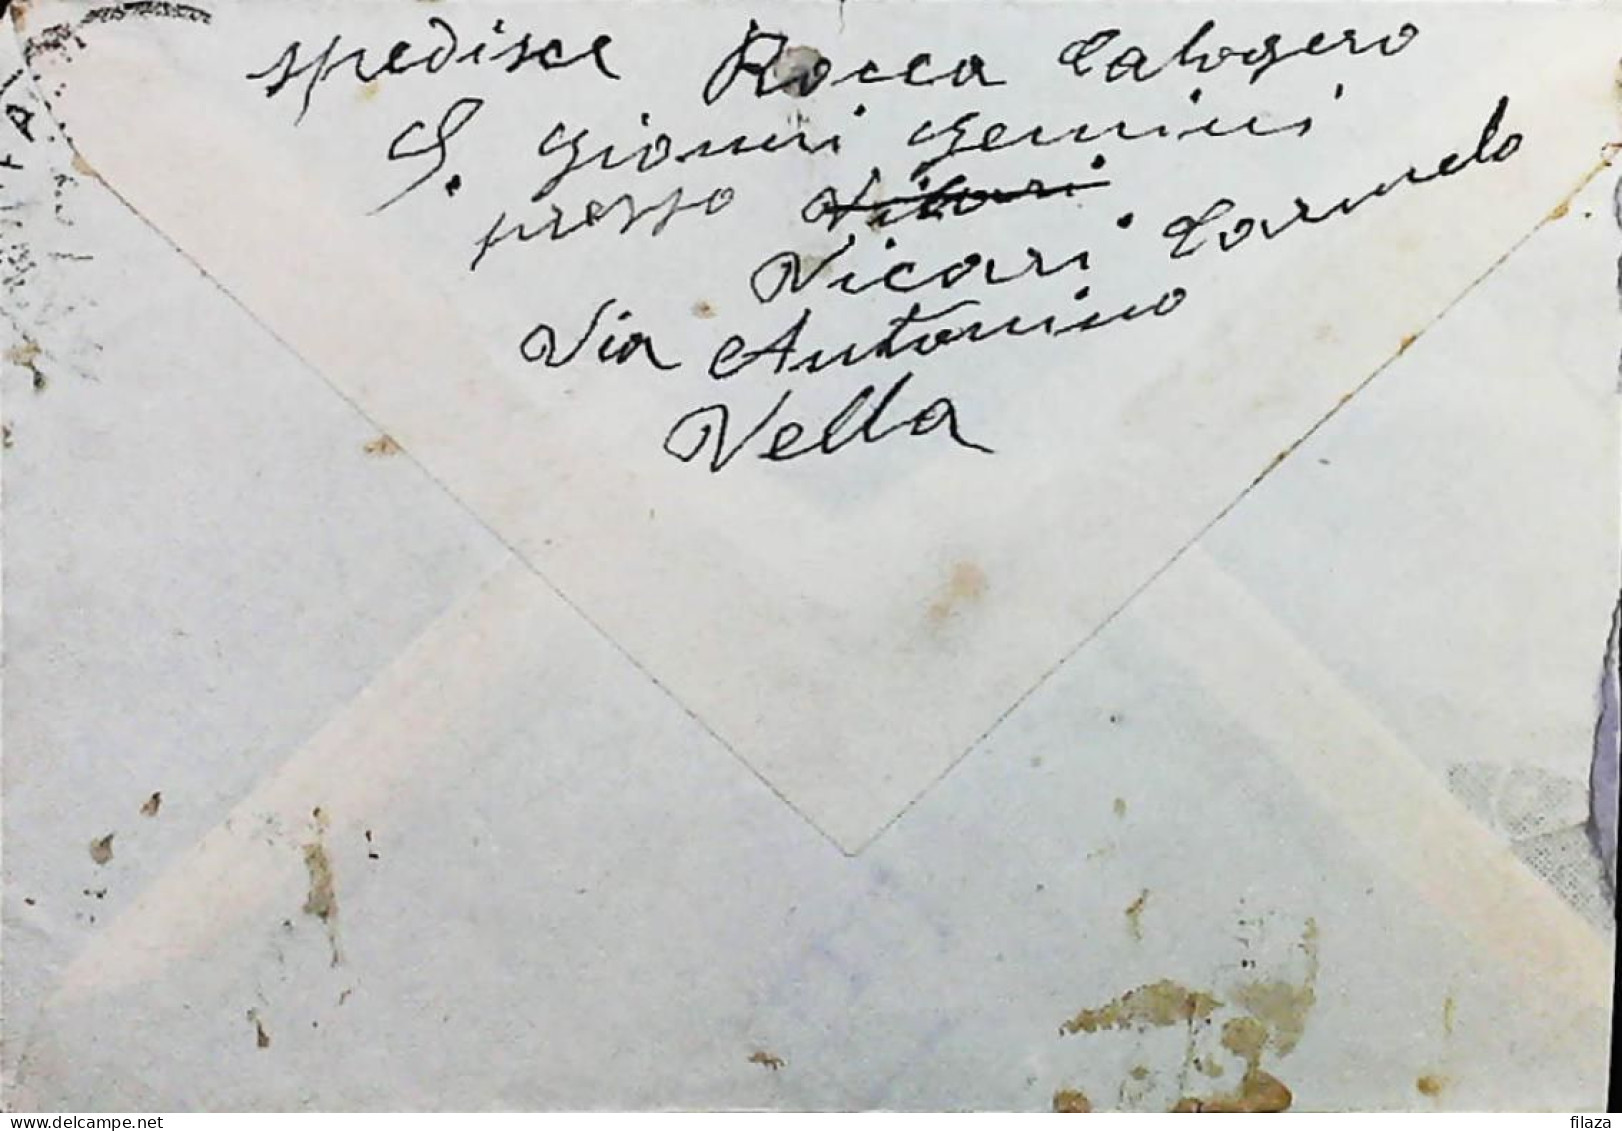 spedisce Rocca Calogero
S. Gionni Gemini
presso Vicari
Vicari Carmelo
Via Antonino
Vella
www.delcampe.net
filaza